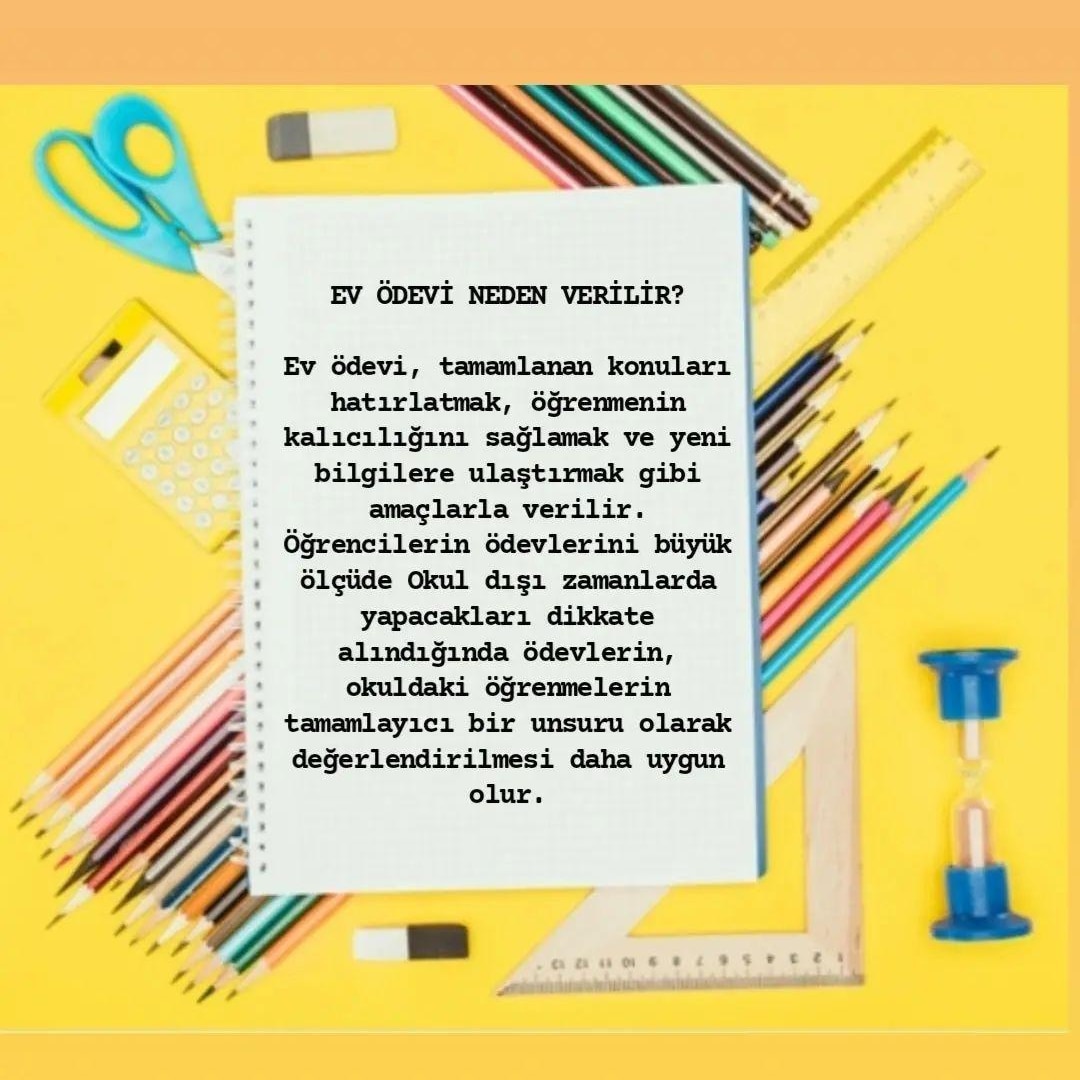 EV ÖDEVİ NEDEN VERİLİR?
Ev ödevi, tamamlanan konuları
hatırlatmak, öğrenmenin
kalıcılığını sağlamak ve yeni
bilgilere ulaştırmak gibi
amaçlarla verilir.
Öğrencilerin ödevlerini büyük
ölçüde Okul dışı zamanlarda
yapacakları dikkate
alındığında ödevlerin,
okuldaki öğrenmelerin
tamamlayıcı bir unsuru olarak
değerlendirilmesi daha uygun
olur.
13 12 11 10 9 8 7 6 5 4 3 2 1